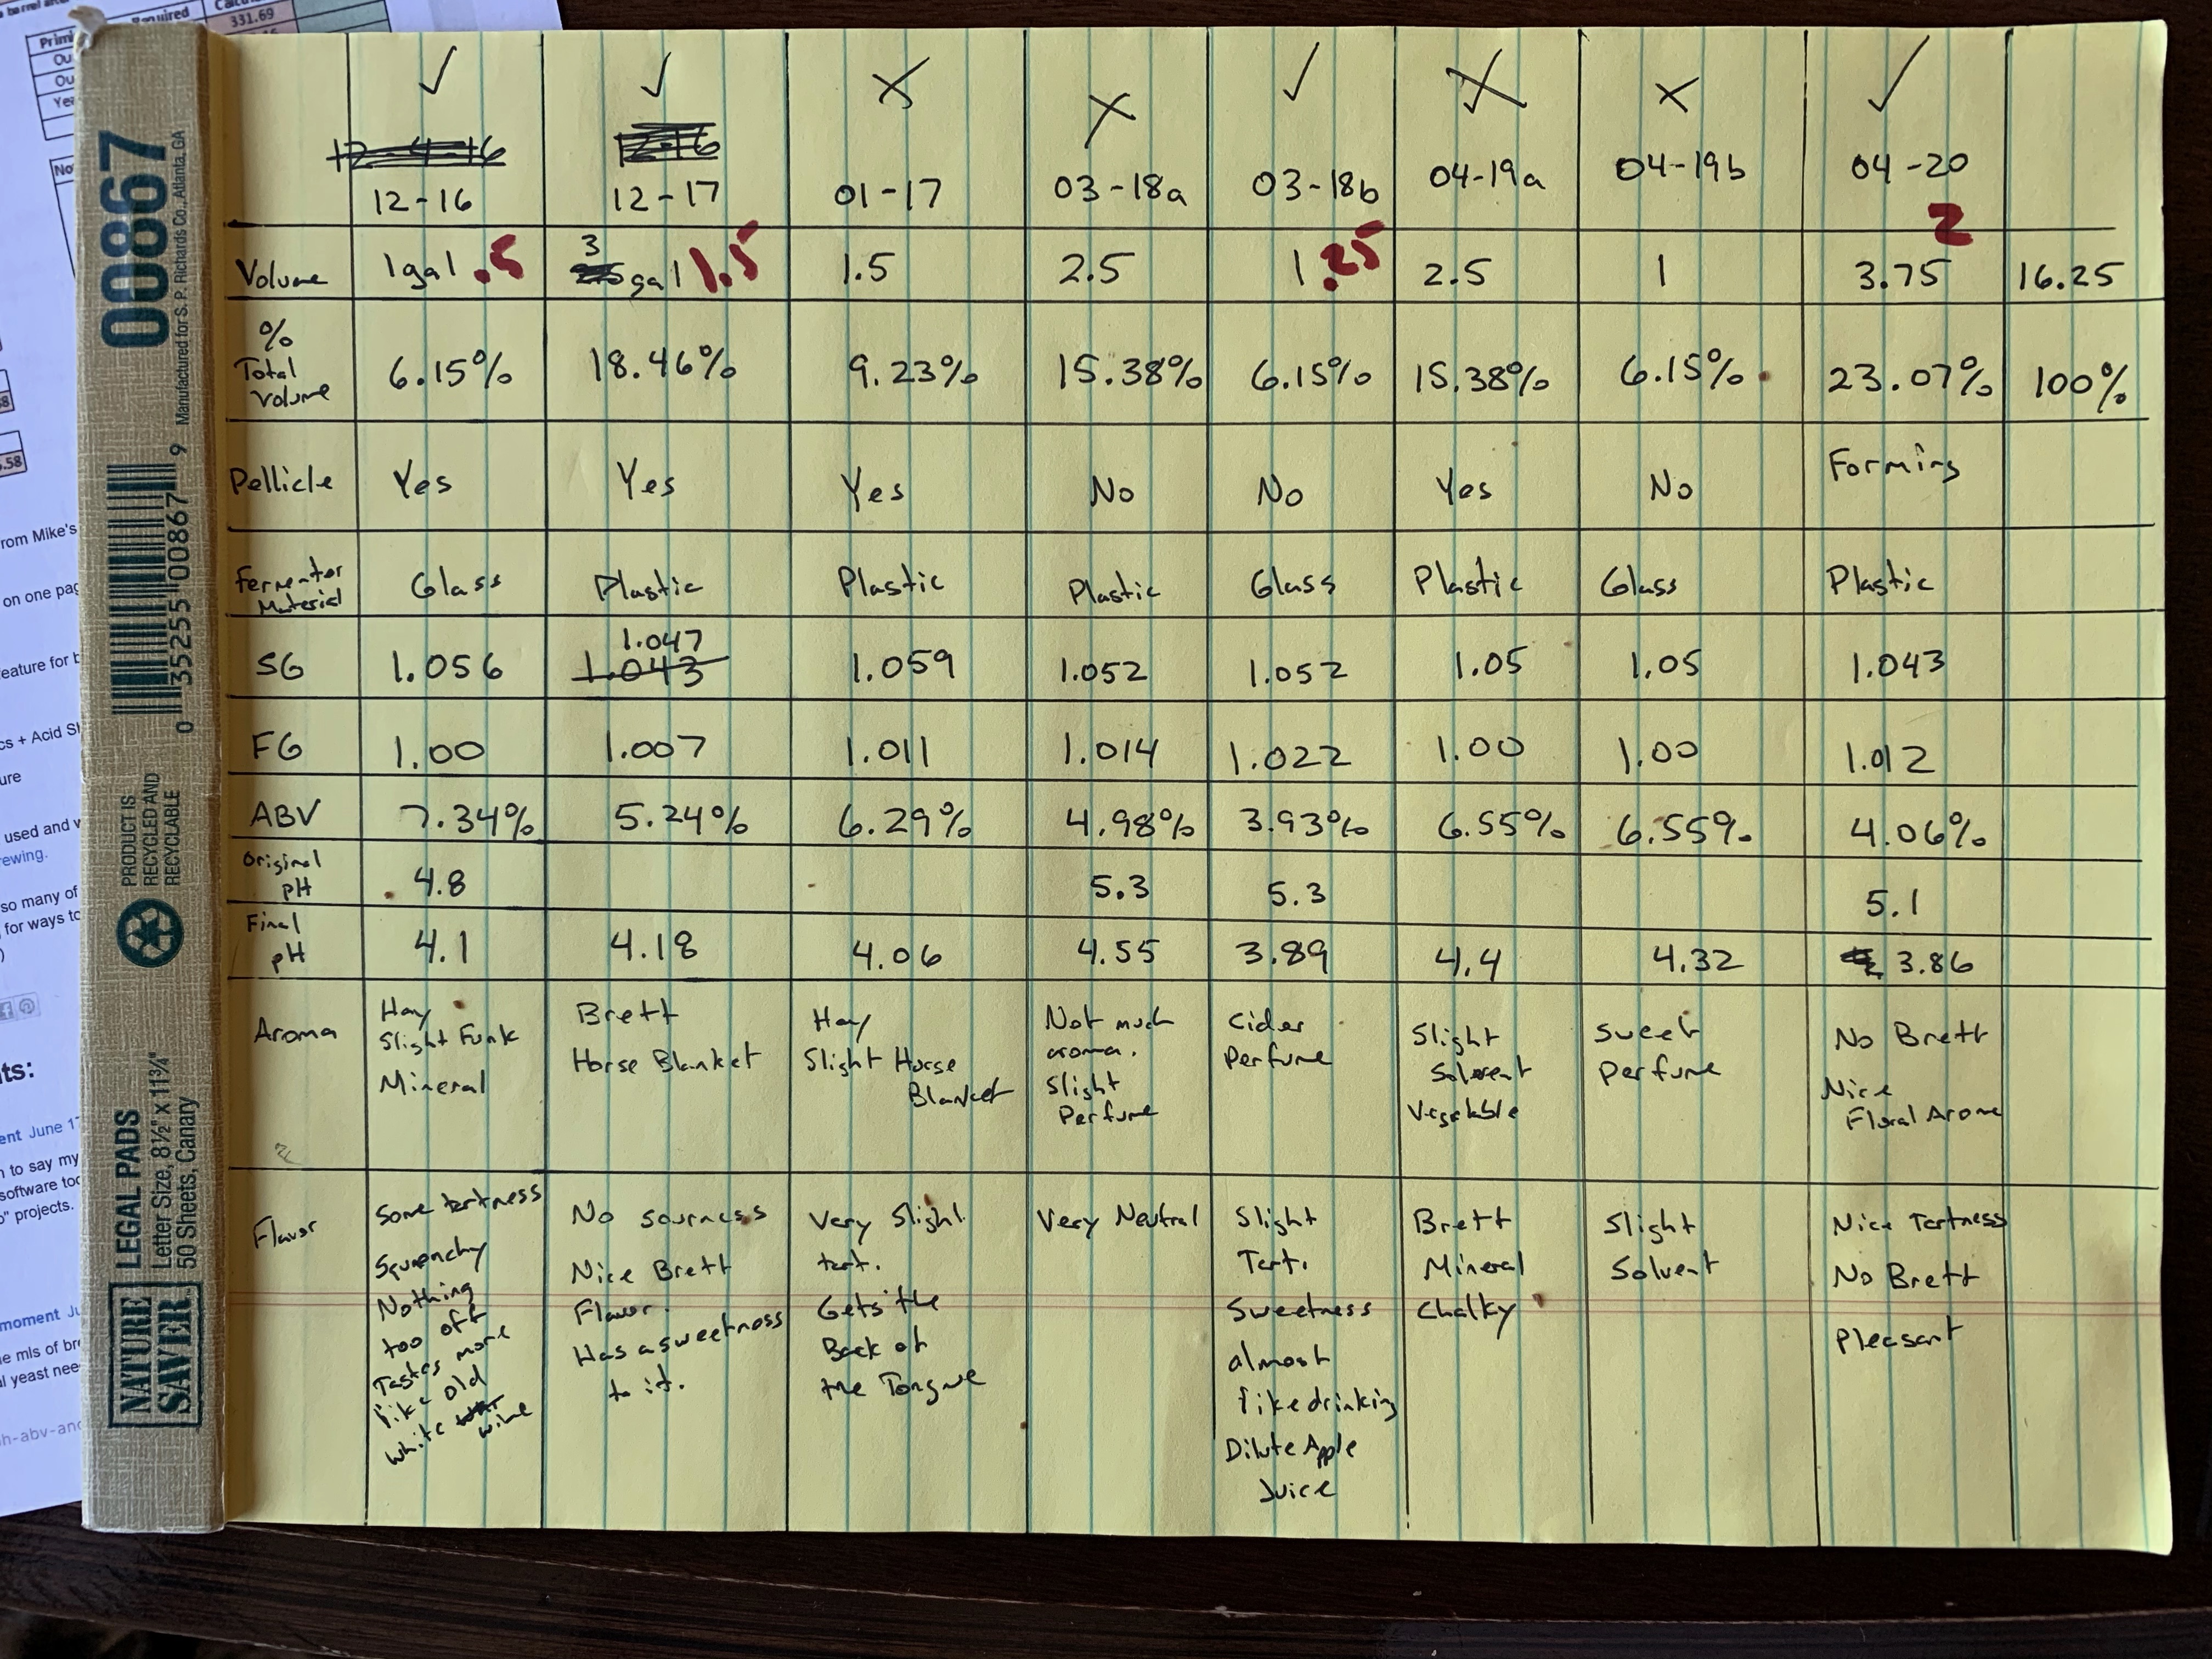 Required
331.69
Prim
Ou
Ou
Yea
No
.58
rom Mike's
on one pag
eature for b
cs + Acid Sh
ure
used and w
rewing.
so many of
for ways to
ts:
ent June 1
n to say my
software too
o" projects.
moment Ju
e mls of bre
al yeast nee
h-abv-and
00867
Manufactured for S. P. Richards Co., Atlanta, GA
0 35255 00867 9
PRODUCT IS
RECYCLED AND
RECYCLABLE
LEGAL PADS
Letter Size, 8½" x 11¾"
50 Sheets, Canary
NATURE
SAVER
✓ ✓ X X ✓ X X ✓
12-4-16 12-16
12-16 12-17 01-17 03-18a 03-18b 04-19a 04-19b 04-20
Volume 1gal .5 3 gal 1.5 1.5 2.5 1 .25 2.5 1 3.75 2 16.25
% Total Volume 6.15% 18.46% 9.23% 15.38% 6.15% 15.38% 6.15% 23.07% 100%
Pellicle Yes Yes Yes No No Yes No Forming
Fermentor Material Glass Plastic Plastic Plastic Glass Plastic Glass Plastic
SG 1.056 1.047 1.043 1.059 1.052 1.052 1.05 1.05 1.043
FG 1.00 1.007 1.011 1.014 1.022 1.00 1.00 1.012
ABV 7.34% 5.24% 6.29% 4.98% 3.93% 6.55% 6.55% 4.06%
Original pH 4.8 5.3 5.3 5.1
Final pH 4.1 4.18 4.06 4.55 3.89 4.4 4.32 3.86
Aroma
Hay
Slight Funk
Mineral
Brett
Horse Blanket
Hay
Slight Horse
Blanket
Not much
aroma.
Slight
Perfume
Cider
Perfume
Slight
Solvent
Vegetable
Sweet
Perfume
No Brett
Nice
Floral Aroma
Flavor
Some tartness
Nothing
too off
Tastes more
like old
white wine
No sourness
Nice Brett
Flavor.
Has a sweetness
to it.
Very Slight
tart.
Gets the
Back of
the Tongue
Very Neutral
Slight
Tart.
Sweetness
almost
like drinking
Dilute Apple
Juice
Brett
Mineral
Chalky
Slight
Solvent
Nice Tartness
No Brett
Pleasant